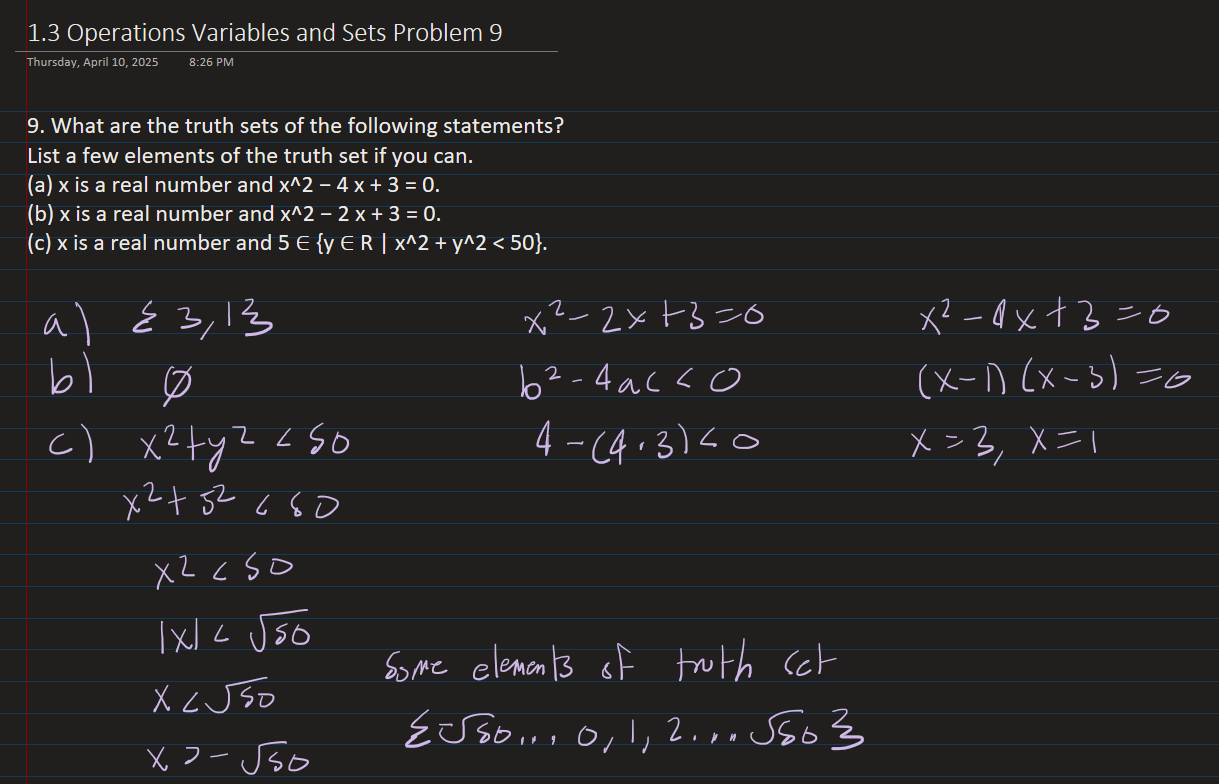 1.3 Operations Variables and Sets Problem 9
Thursday, April 10, 2025 8:26 PM
9. What are the truth sets of the following statements?
List a few elements of the truth set if you can.
(a) x is a real number and x^2 − 4 x + 3 = 0.
(b) x is a real number and x^2 − 2 x + 3 = 0.
(c) x is a real number and 5 ∈ {y ∈ R | x^2 + y^2 < 50}.
a) {3,1} x²-2x+3=0 x²-4x+3=0
b) ∅ b²-4ac<0 (x-1)(x-3)=0
c) x²+y²<50 4-(4·3)<0 x=3, x=1
x²+5²<50
x²<50
|x|<√50
Some elements of truth set
x<√50
{-√50... 0, 1, 2... √50}
x>-√50